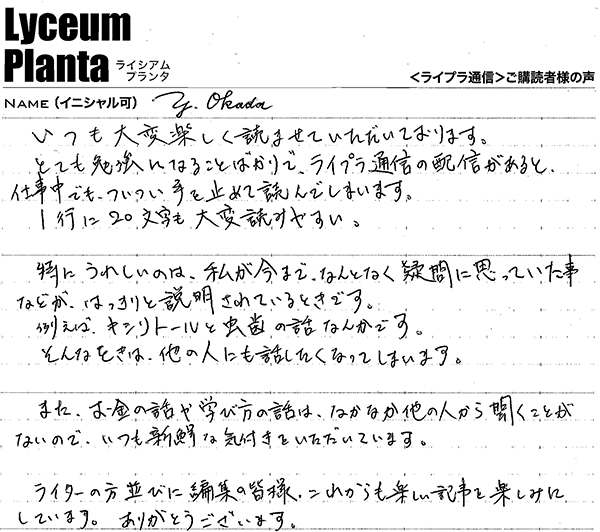 Lyceum
Planta ライシアム
プランタ
<ライプラ通信>ご購読者様の声
NAME (イニシャル可) Y. Okada
いつも大変楽しく読ませていただいております。
とても勉強になることばかりで、ライプラ通信の配信があると、
仕事中でも、ついつい手を止めて読んでしまいます。
1行に20文字も大変読みやすい。
特にうれしいのは、私が今まで、なんとなく疑問に思っていた事
などが、はっきりと説明されているときです。
例えば、キシリトールと虫歯の話なんかです。
そんなときは、他の人にも話したくなってしまいます。
また、お金の話や学び方の話は、なかなか他の人から聞くことが
ないので、いつも新鮮な気付きをいただいています。
ライターの方並びに編集の皆様、これからも楽しい記事を楽しみに
しています。ありがとうございます。